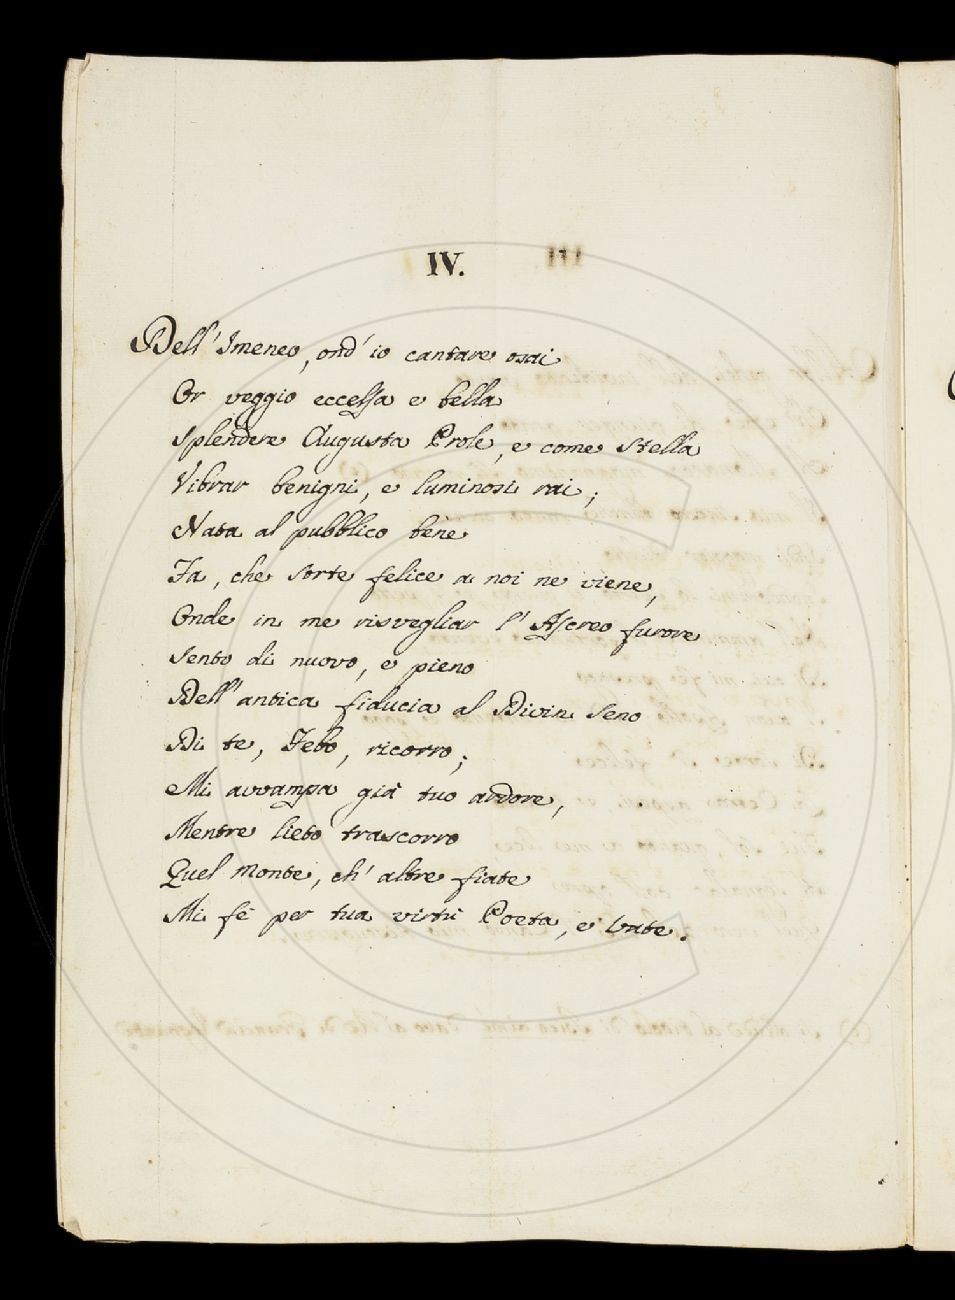 IV.
Dell' Imeneo, ond' io cantare osai
Or veggio eccelsa e bella
Splendere Augusta Prole, e come Stella
Vibrar benigni, e luminosi rai;
Nata al pubblico bene
Fa, che sorte felice a noi ne viene,
Onde in me risvegliar l' Ascreo furore
Sento di nuovo, e pieno
Dell' antica fiducia al Divin Seno
Di te, Febo, ricorro;
Mi avvampa già tuo ardore,
Mentre lieto trascorro
Quel Monte, ch' altre fiate
Mi fè per tua virtù Poeta, e Vate.